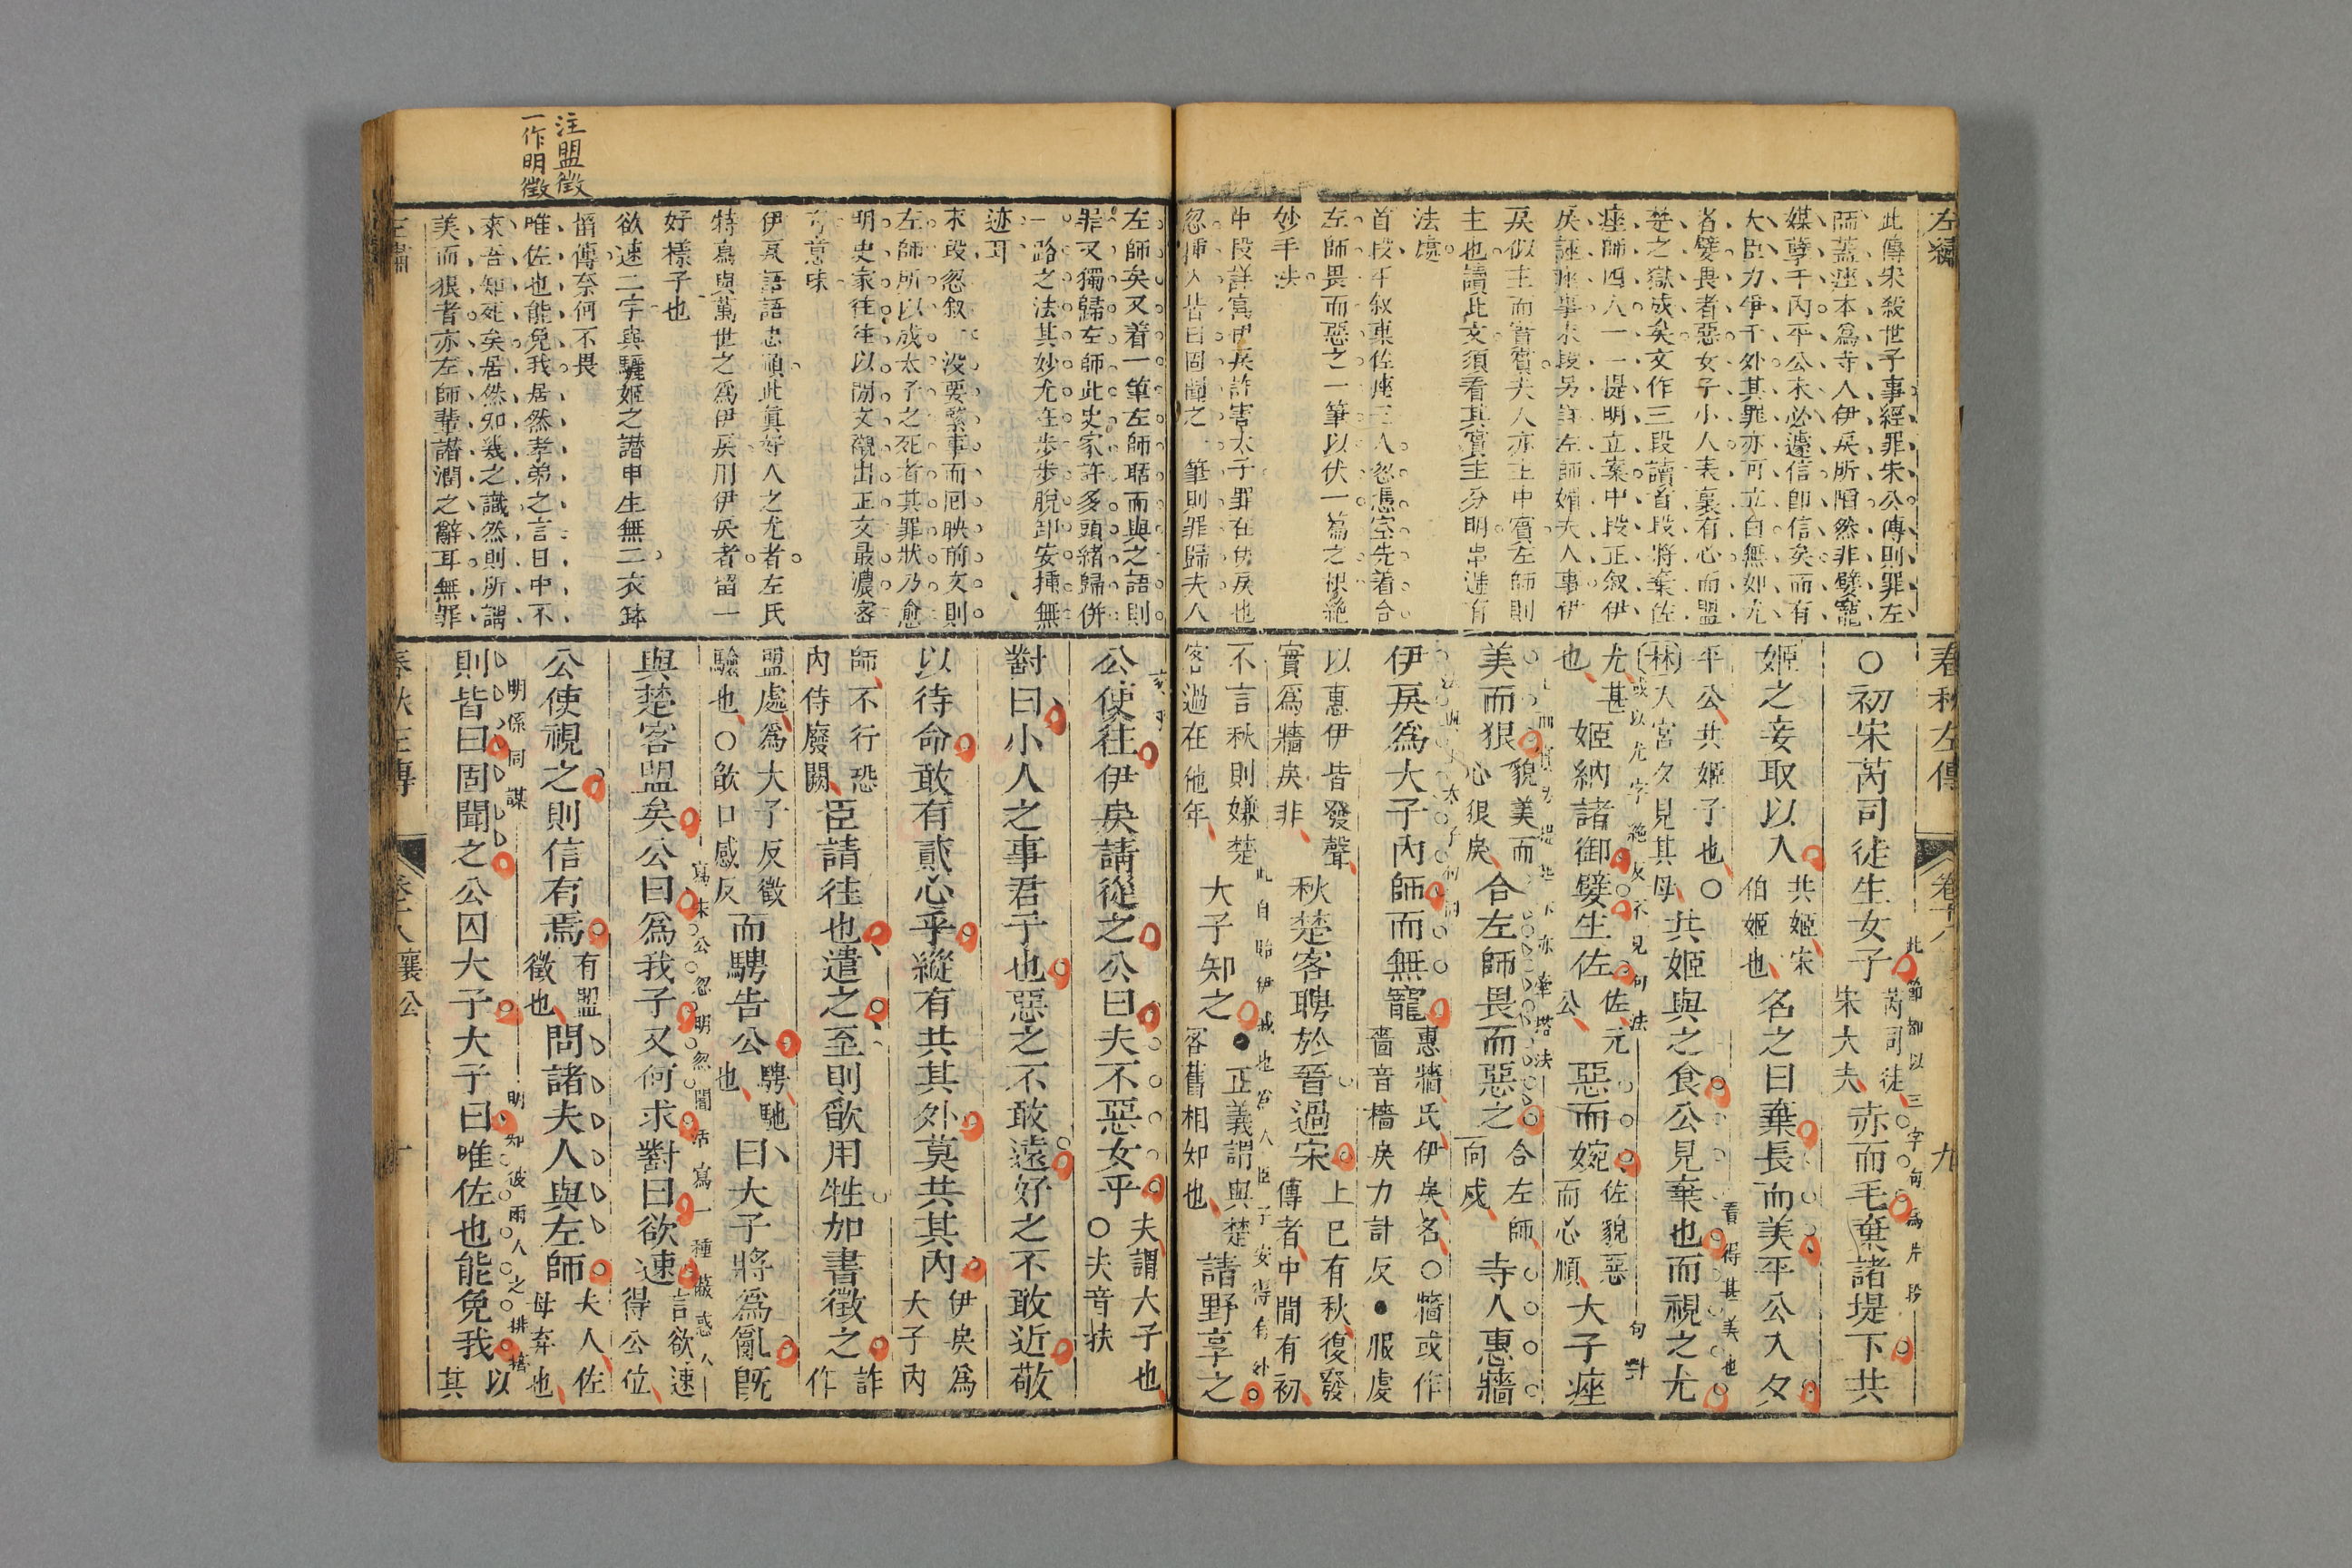 左繡
此傳宋殺世子事經罪宋公傳則罪左
師蓋痤本爲寺人伊戾所陷然非嬖寵
媒孽于內平公未必遽信卽信矣而有
大臣力爭于外其罪亦可立白無如尤
者嬖畏者惡女子小人表裏有心而盟
楚之獄成矣文作三段讀首段將棄佐
痤師四人一一提明立案中段正叙伊
戾誣痤事末段另詳左師媚夫人事伊
戾似主而實賓夫人亦主中賓左師則
主也讀此文須看其賓主分明串遞有
法處
首段平叙棄佐痤三人忽憑空先着合
左師畏而惡之一筆以伏一篇之根絶
妙手法
中段詳寫伊戾訐害太子罪在伊戾也
忽揷入皆曰固聞之一筆則罪歸夫人
春秋左傳 卷十八 九
此節卻以三字句爲片段
○初宋芮司徒生女子芮司徒宋大夫赤而毛棄諸堤下共
姬之妾取以入共姬宋伯姬也名之曰棄長而美平公入夕
看得甚美也
平公共姬子也○(林)入宮夕見其母共姬與之食公見棄也而視之尤
或以尤字絶灰不見句法 句對
尤甚也姬納諸御嬖生佐佐元公惡而婉佐貌惡而心順大子痤
美而狠貌美而心狠戾合左師畏而惡之合左師向戌寺人惠牆
伊戾爲大子內師而無寵惠牆氏伊戾名○牆或作嗇音檣戾力計反●服虔
以惠伊皆發聲實爲牆戾非秋楚客聘於晉過宋上已有秋復發傳者中間有初
此自貽伊戚也爲人臣子安得有外
不言秋則嫌楚客過在他年大子知之●正義謂與楚客舊相知也請野享之
注盟徵
一作明徵
左師矣又着一筆左師聒而與之語則
罪又獨歸左師此史家許多頭緒歸併
一路之法其妙尤在步步脫卸安揷無
迹耳
末段忽叙一沒要緊事而囘映前文則
左師所以成太子之死者其罪狀乃愈
明史家往往以閒文襯出正文最濃密
有意味
伊戾語語忠順此眞好人之尤者左氏
特寫與萬世之爲伊戾用伊戾者留一
好樣子也
欲速二字與驪姬之譖申生無二衣鉢
相傳奈何不畏
唯佐也能免我居然孝弟之言日中不
來吾知死矣居然知幾之識然則所謂
美而狠者亦左師輩譖潤之辭耳無罪
左繡
公使往伊戾請從之公曰夫不惡女乎夫謂大子也○夫音扶
對曰小人之事君子也惡之不敢遠好之不敢近敬
以待命敢有貳心乎縱有共其外莫共其內伊戾爲大子內
師不行恐內侍廢闕臣請往也遣之至則欿用牲加書徵之詐作
盟處爲大子反徵驗也○欿口感反而騁告公騁馳也曰大子將爲亂旣
寫末公忽明忽闇活寫一種蔽惑人
與楚客盟矣公曰爲我子又何求對曰欲速言欲速得公位
公使視之則信有焉有盟徵也問諸夫人與左師夫人佐母棄也
明係同謀 明知彼兩人之排擠
則皆曰固聞之公囚大子大子曰唯佐也能免我以其
春秋左傳 卷十八襄公 十